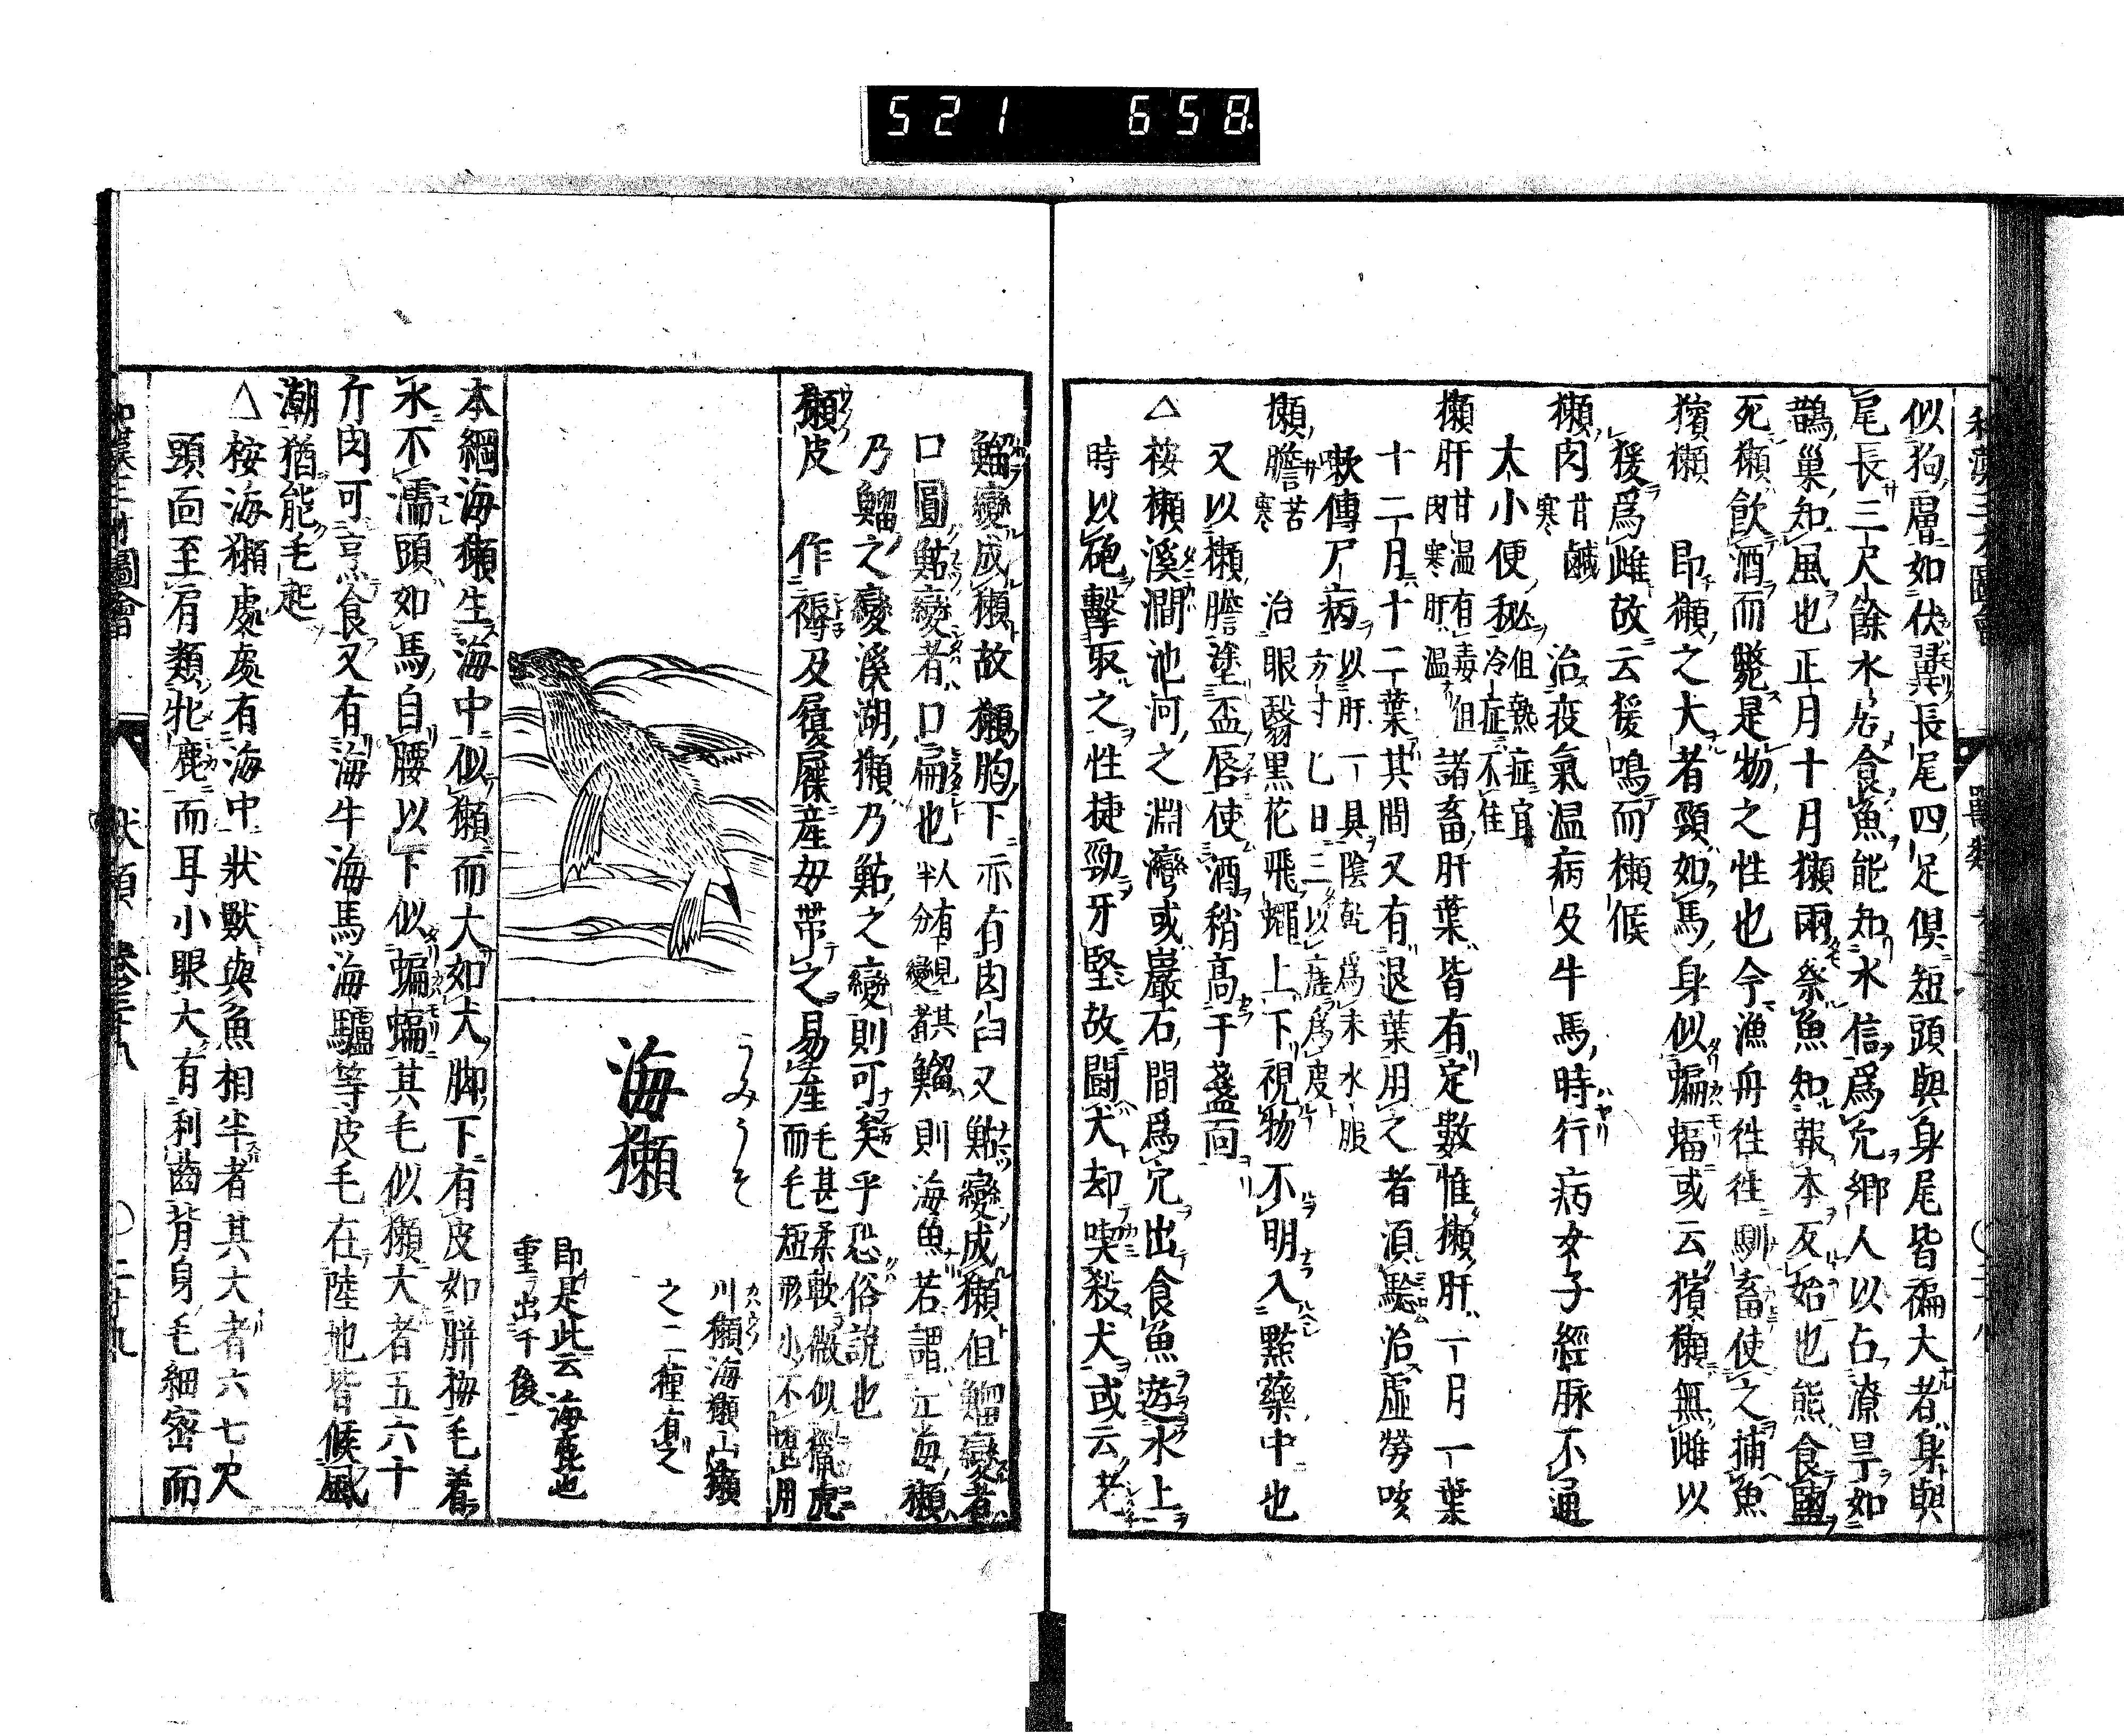 521 658.
和漢三才圖會 獸類
似狗膚如伏翼長尾四足倶短頭與身尾皆褊大者身與
尾長三尺餘水居食魚能知水信爲穴郷人以占潦旱如
鵲巢知風也正月十月獺兩祭魚知報本反始也熊食鹽
死獺飲酒而斃是物之性也今漁舟徃徃馴畜使之捕魚
獱獺 即獺之大者頸如馬身似蝙蝠或云獱獺無雌以
猨爲雌故云猨鳴而獺候
獺肉 甘鹹寒 治疫氣温病及牛馬時行病女子經脉不通
大小便秘 但熱症宜冷症不佳
獺肝 甘温有毒但肉寒肝温 諸畜肝葉皆有定數惟獺肝一月一葉
十二月十二葉其間又有退葉用之者湏驗治虚勞咳
嗽傳尸病 以肝一具陰乾爲末水服方寸匕日三以瘥爲度
獺膽 苦寒 治眼翳黒花飛蠅上下視物不明入㸃藥中也
又以獺膽塗盃唇使酒稍高于盞面
△按獺溪澗池河之淵灣或巖石間爲穴出食魚遊水上
時以砲擊取之性捷勁牙堅故鬪犬却喫殺犬或云老
鰡變成獺故獺胸下亦有肉臼又鮎變成獺但鰡變者
口圓鮎變者口扁也 人有見其半分變者 鰡則海魚若謂江海獺
乃鰡之變溪湖獺乃鮎之變則可矣乎恐俗說也
獺皮 作褥及履屧産母帶之易産 毛甚柔軟微似獵虎而毛短形小不堪用
海獺
うみうそ
川獺海獺山獺
之三種有之
即是此云海鹿也
重出于後
本綱海獺生海中似獺而大如犬脚下有皮如胼拇毛着
水不濡頭如馬自腰以下似蝙蝠其毛似獺大者五六十
斤肉可烹食又有海牛海馬海驢等皮毛在陸地皆候風
潮猶能毛起
△按海獺處處有海中狀獸與魚相半者其大者六七尺
頭面至肩類牝鹿而耳小眼大有利齒背身毛細密而
和漢三才圖會 獸類 卷三十八 ○ 二十九